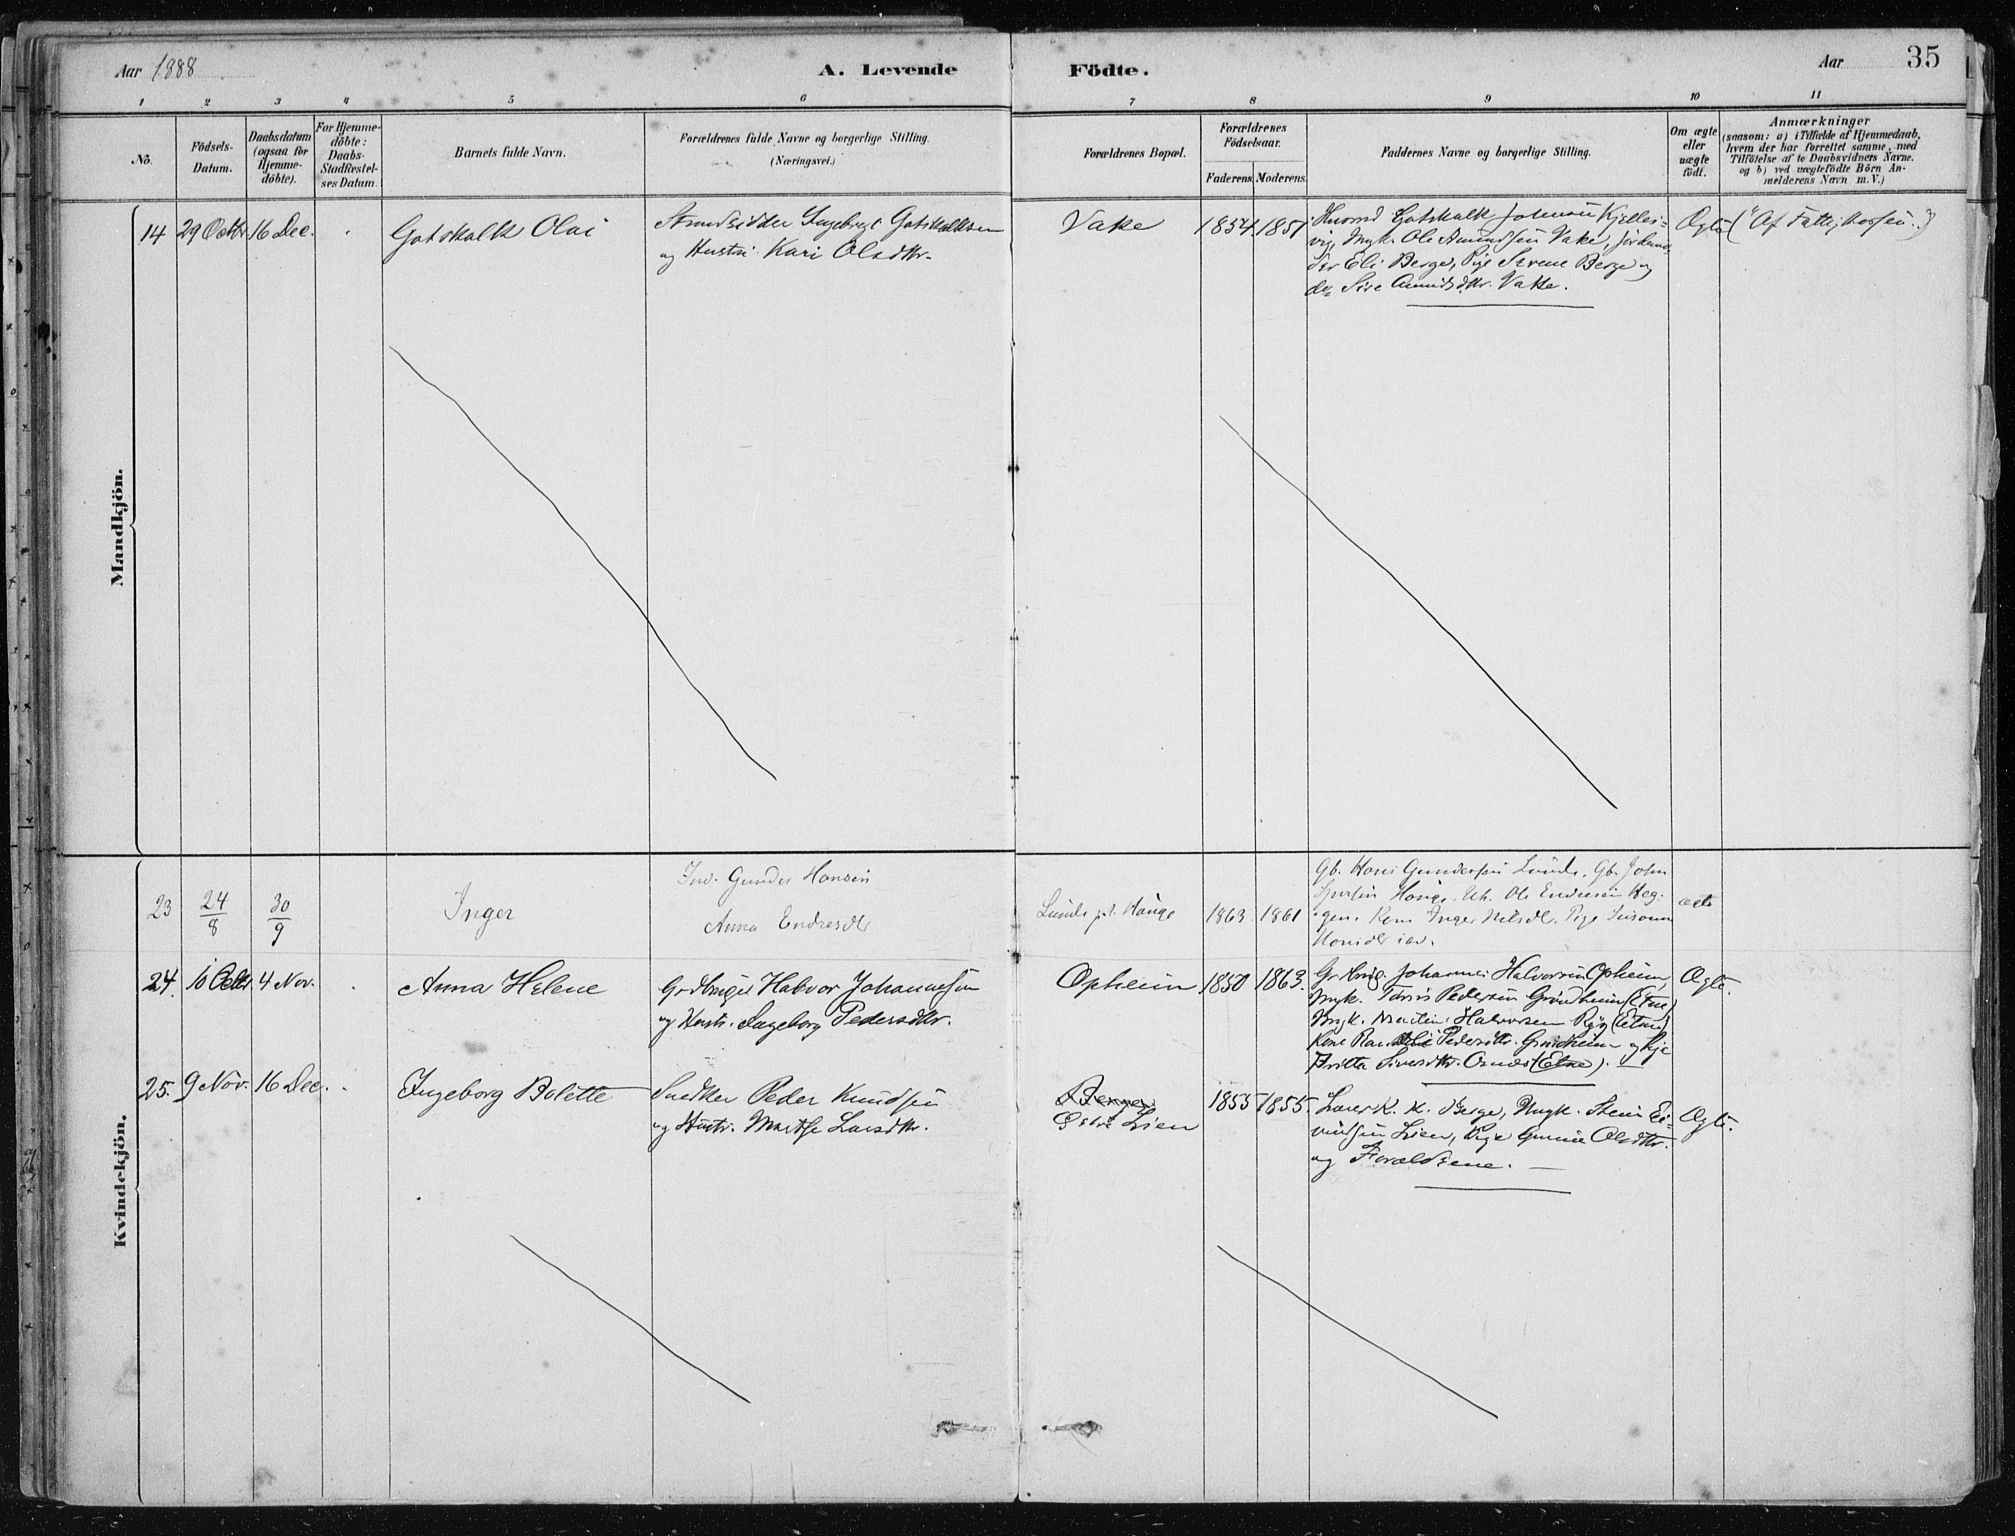 Aar 1888
A. Levende
Födte.
Aar
35
1 2 3 4 5 6 7 8 9 10 11
No.
Födsels-
Datum.
Daabsdatum
(ogsaa for
Hjemme-
döbte).
For Hjemme-
döbte:
Daabs-
Stadfæstel-
ses Datum.
Barnets fulde Navn.
Forældrenes fulde Navne og borgerlige Stilling.
(Næringsvei.)
Forældrenes Bopæl.
Forældrenes
Födselsaar.
Faderens.
Moderens.
Faddernes Navne og borgerlige Stilling.
Om ægte
eller
uægte
födt.
Anmærkninger
(saasom: a) i Tilfælde af Hjemmedaab,
hvem der har forrettet samme, med
Tilföielse af to Daabsvidners Navne.
og b) ved uægtefödte Börn An-
melderens Navn m. V.)
Mandkjön.
14
29 Octbr
16 Dec.
Gotskalk Olai
Strandsidder Ingebregt Gotskalksen
og Hustri Kari Olsdtr.
Vake
1854
1851
Husmd Gotskalk Johnsen Kjelles-
vig, Ungk. Ole Amundsen Vake,
Eli Berge, Pige Serene Berge og
do Sire Amundsdtr. Vake.
Ægte
(Af Fattigkassen.)
Kvindekjön.
23
24/8
30/9
Inger
Ind. Gunder Hansen
Anna Endresdtr
Lunde pt. Hauge
1863
1861
Gb. Hans Gundersen Lunde, Gb. John
Hauge, Uk. Ole Endresen Heg-
gen. Kone Inger Nilsdtr. Pige
ægte
24.
10 Octbr
4 Nov.
Anna Helene
Grdbruger Halvor Johannesen
og Hustr. Ingeborg Pedersdtr.
Opheim
1850
1863.
Grdbrug. Johannes Halvorsen Opheim,
Ungk. Tønnis Pedersen Grindheim (Etne)
Ungk. Martin Halvorsen Ryg (Etne)
Kone Pedersdtr. Grindheim og Pige
Britta Siversdtr. Osnes (Etne).
Ægte.
25.
9 Nov.
16 Dec.
Ingeborg Bolette
Snedker Peder Knudsen
og Hustr. Marthe Larsdtr.
Berge.
Østre Lien
1855
1855.
Lærer K. K. Berge, Ungk. Sten Ei-
vindsen Lien, Pige Gurine Olsdtr.
og Forældrene.
Ægte.